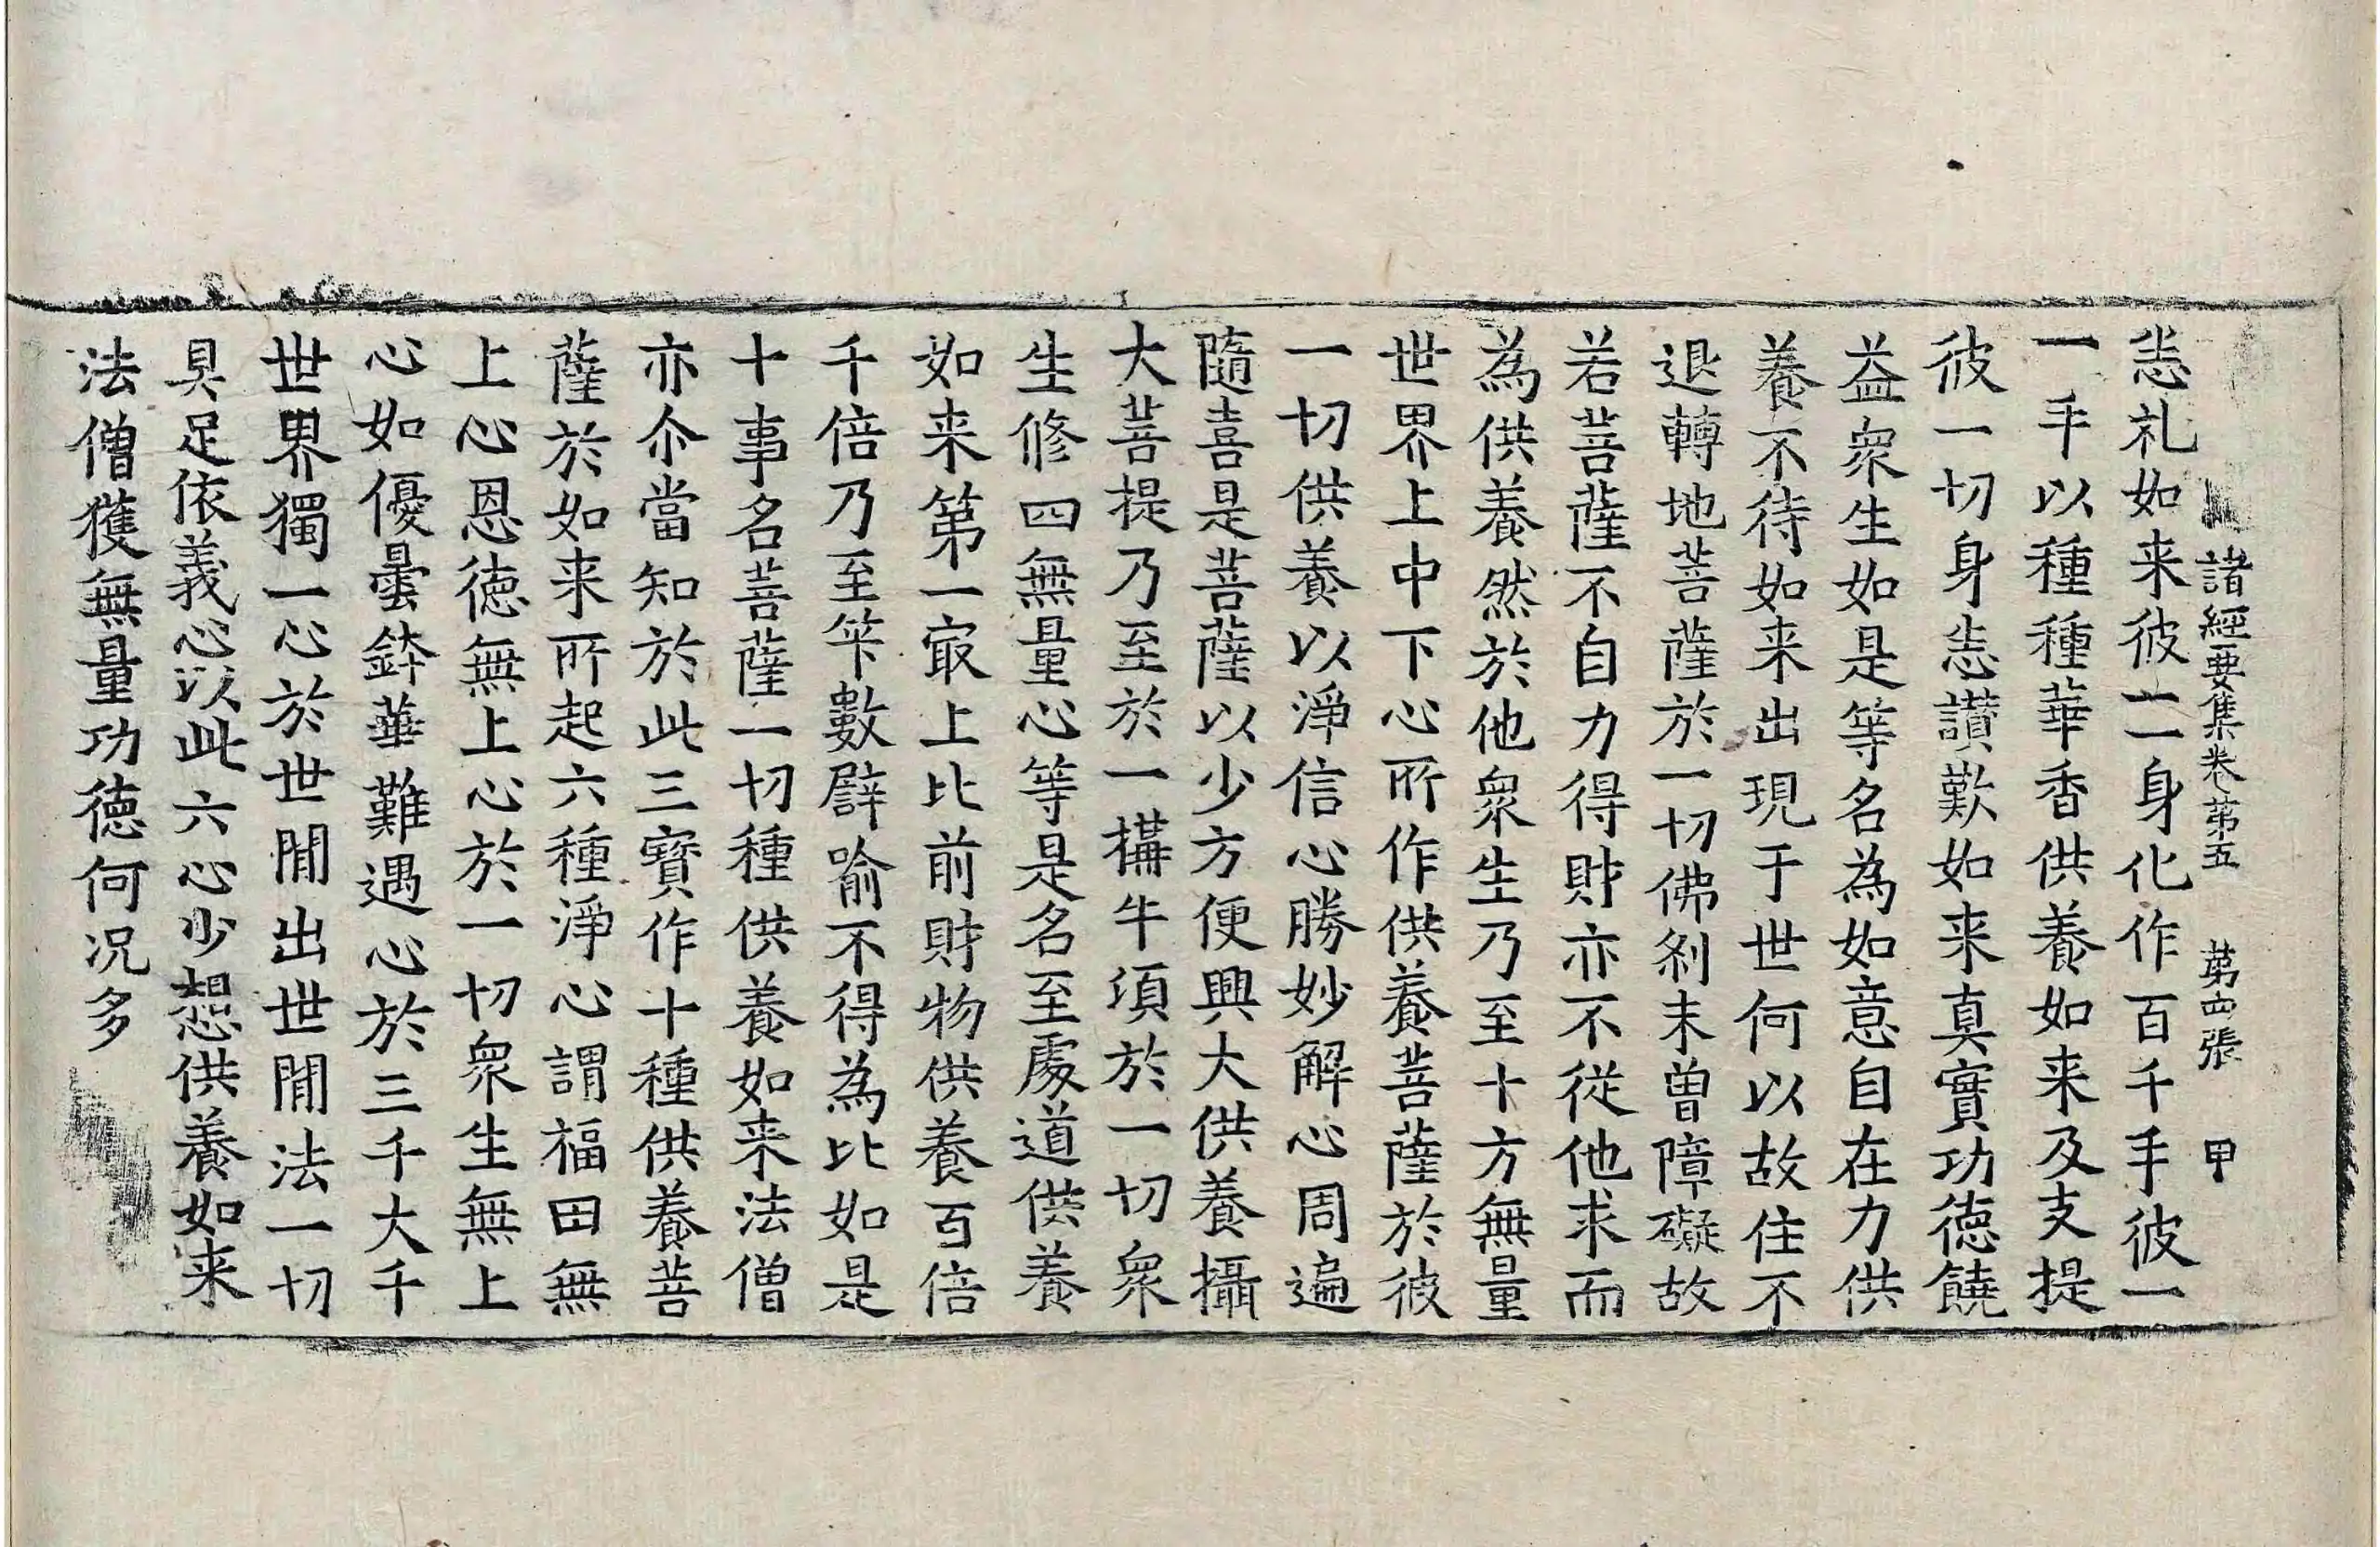 諸經要集卷第五　第四張　甲
悉礼如来彼一一身化作百千手彼一
一手以種種華香供養如来及支提
彼一切身悉讃歎如来真實功徳饒
益衆生如是等名為如意自在力供
養不待如来出現于世何以故住不
退轉地菩薩於一切佛刹未曽障礙故
若菩薩不自力得財亦不從他求而
為供養然於他衆生乃至十方無量
世界上中下心所作供養菩薩於彼
一切供養以淨信心勝妙解心周遍
隨喜是菩薩以少方便興大供養攝
大菩提乃至於一搆牛項於一切衆
生修四無量心等是名至處道供養
如来第一㝡上比前財物供養百倍
千倍乃至笇數譬喻不得為比如是
十事名菩薩一切種供養如来法僧
亦尒當知於此三寶作十種供養菩
薩於如来所起六種淨心謂福田無
上心恩徳無上心於一切衆生無上
心如優曇鉢華難遇心於三千大千
世界獨一心於世閒出世閒法一切
具足依義心以此六心少想供養如来
法僧獲無量功徳何况多